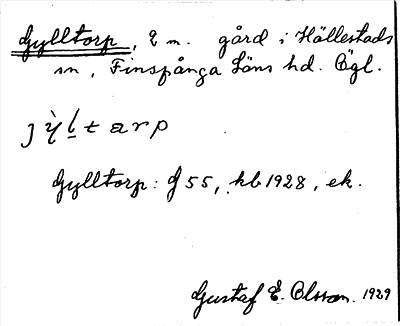 Gylltorp, 2 m. gård i Hällestads
sn, Finspånga läns hd. Ögl.
jỳltarp
Gylltorp: J 55, kb 1928, ek.
Gustaf E. Olsson. 1929